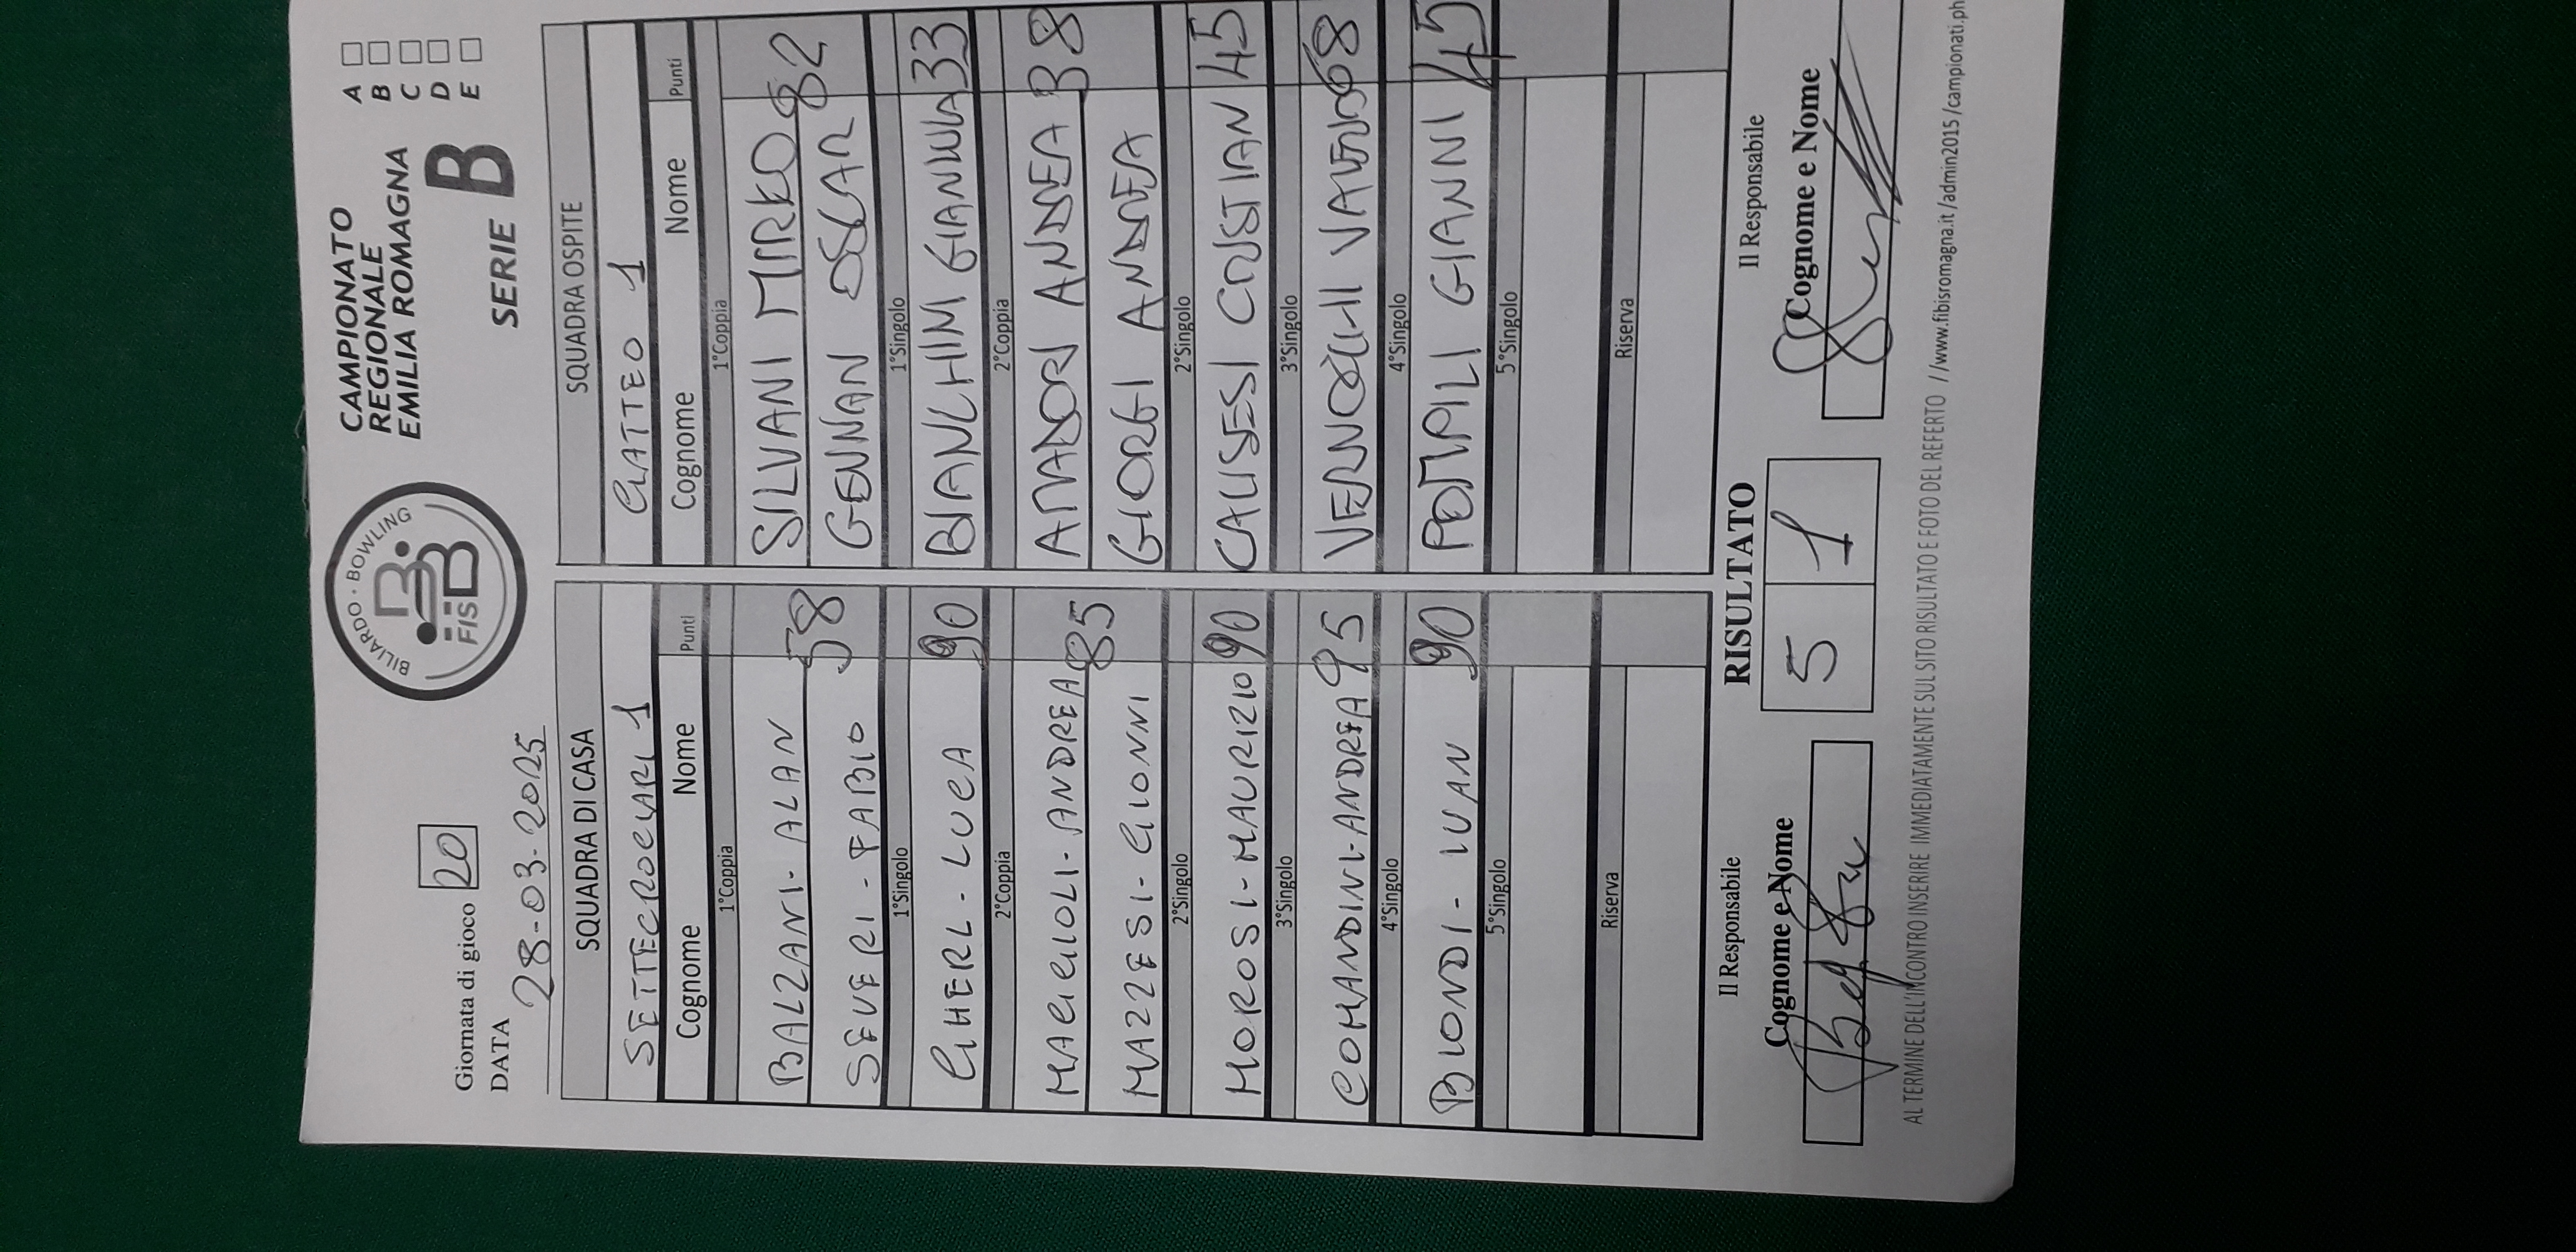 BILIARDO · BOWLING
FISBB
CAMPIONATO
REGIONALE
EMILIA ROMAGNA
A
B
C
D
E
SERIE B
Giornata di gioco 20
DATA
28-03-2025
SQUADRA DI CASA
SETTECROCIARI 1
Cognome Nome Punti
1°Coppia
BALZANI - ALAN 58
SEVERI - FABIO
1°Singolo
LUCA 90
2°Coppia
ANDREA 85
MAZZESI - GIONNI
2°Singolo
MOROSI - MAURIZIO 90
3°Singolo
COMANDINI - ANDREA 95
4°Singolo
BIONDI - IVAN 90
5°Singolo
Riserva
SQUADRA OSPITE
GATTEO 1
Cognome Nome Punti
1°Coppia
SILVANI MIRKO 82
OSCAR
1°Singolo
BIANCHINI GIANLUCA 33
2°Coppia
AMADORI ANDREA 38
GIORGI ANDREA
2°Singolo
CRISTIAN 45
3°Singolo
68
4°Singolo
GIANNI 45
5°Singolo
Riserva
Il Responsabile
Cognome e Nome
RISULTATO
5 1
Il Responsabile
Cognome e Nome
AL TERMINE DELL'INCONTRO INSERIRE IMMEDIATAMENTE SUL SITO RISULTATO E FOTO DEL REFERTO //www.fibisromagna.it/admin2015/campionati.ph